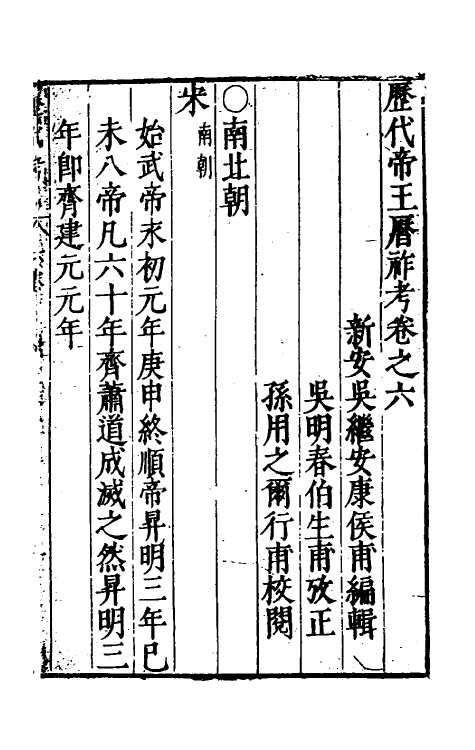 歷代帝王曆祚考卷之六
新安吳繼安康侯甫編輯
吳明春伯生甫攷正
孫用之爾行甫校閱
○南北朝
宋南朝
始武帝永初元年庚申終順帝昇明三年巳
未八帝凡六十年齊蕭道成滅之然昇明三
年卽齊建元元年